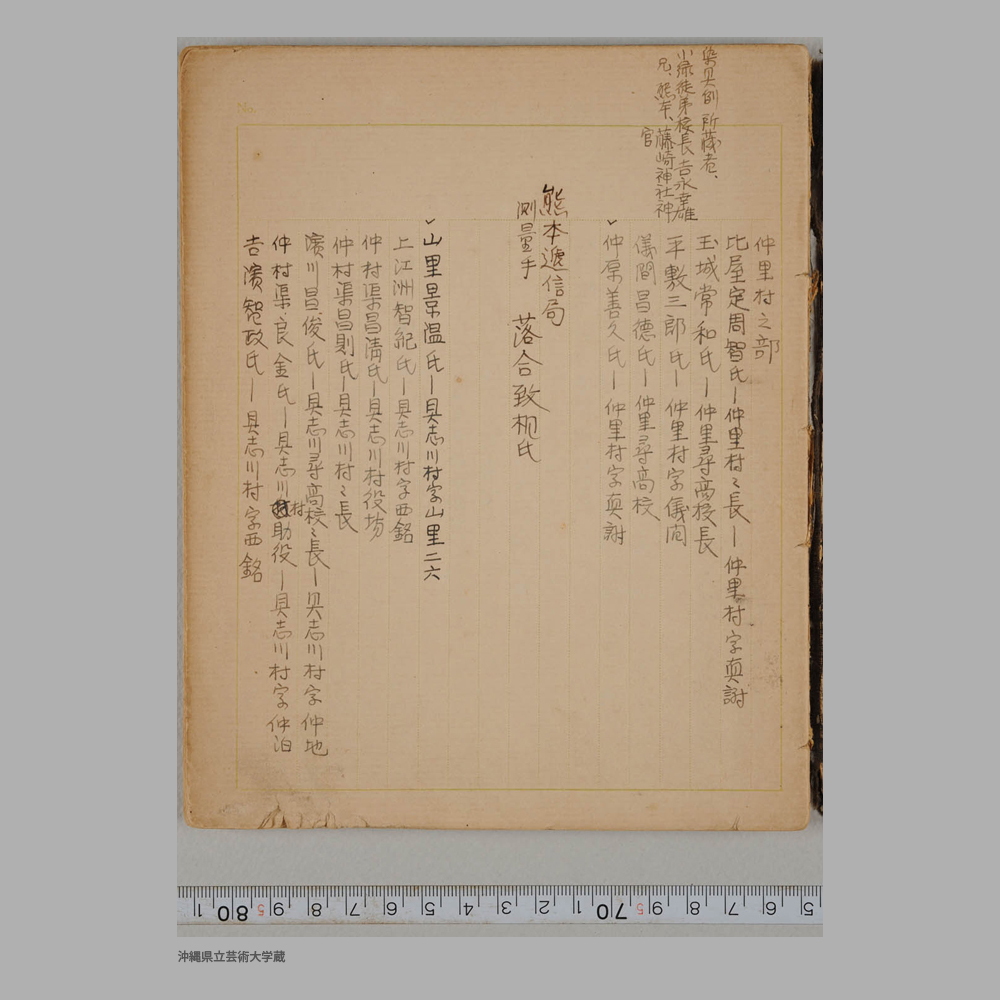 貝例所蔵者、
小緑徒弟校長吉永幸雄
兄、熊本、藤崎神社神
官
仲里村之部
比屋定周智氏ー仲里村〻長ー仲里村字真謝
玉城常和氏ー仲里尋高校長
平敷三郎氏ー仲里村字儀間
儀間昌徳氏ー仲里尋高校
仲原善久氏ー仲里村字真謝
熊本逓信局
測量手 落合致 氏
山里景温氏ー具志川村字山里二六
上江洲智紀氏ー具志川村字西銘
仲村渠昌清氏ー具志川村役場
仲村渠昌則氏ー具志川村〻長
濱川昌俊氏ー具志川尋高校〻長ー具志川村字仲地
仲村渠良金氏ー具志川村助役ー具志川村字仲泊
吉濱智政氏ー具志川村字西銘
1 80 5 9 8 7 6 5 4 3 2 1 70 5 9 8 7 6 5
沖縄県立芸術大学蔵